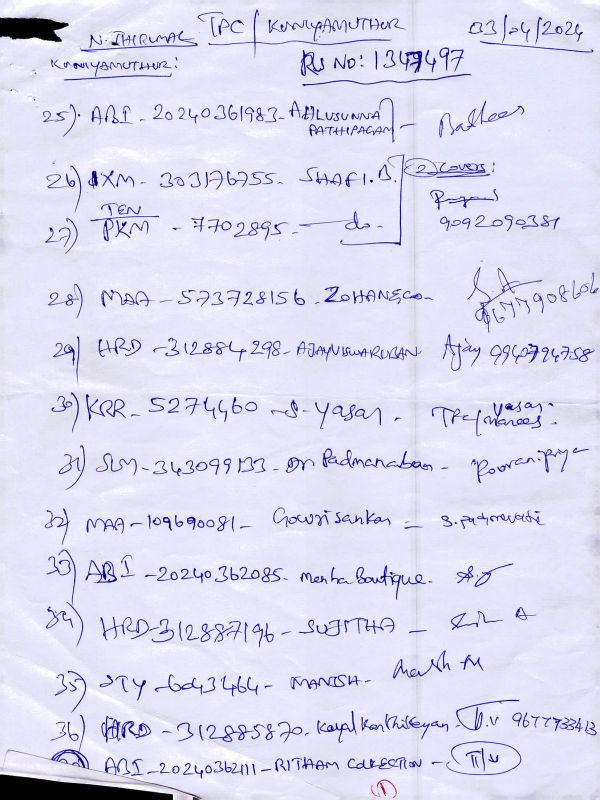 N. THIRUMAL TPC / KUNIYAMUTHUR 03/04/2024
KUNIYAMUTHUR: RS NO: 1347497
25) ABI - 20240361983 - AHLUSUNNA PATHIPAGAM -
26) IXM - 303176755 - SHAFI.B. 2 COVERS:
27) TEN PKM - 7702895 - do - 9092090381
28) MAA - 573728156 - ZOHANECO - 9677908606
29) HRD - 312884298 - AJAYVISWARUBAN Ajay 9940794758
30) KRR - 5274460 - S. Yasar - TPC/ Yasar
31) SLM - 343099133 - Dr Padmanaban - Pooranipriya
32) MAA - 109690081 - Gowrisankar - S.
33) ABI - 20240362085 - Menha Boutique -
34) HRD - 312887196 - SUJITHA -
35) STY - 6043464 - MANISH -
36) HRD - 312885870 - Kayal Karthikeyan - D.V 9677733413
ABI - 20240362111 - RITHAM COLLECTION -
1